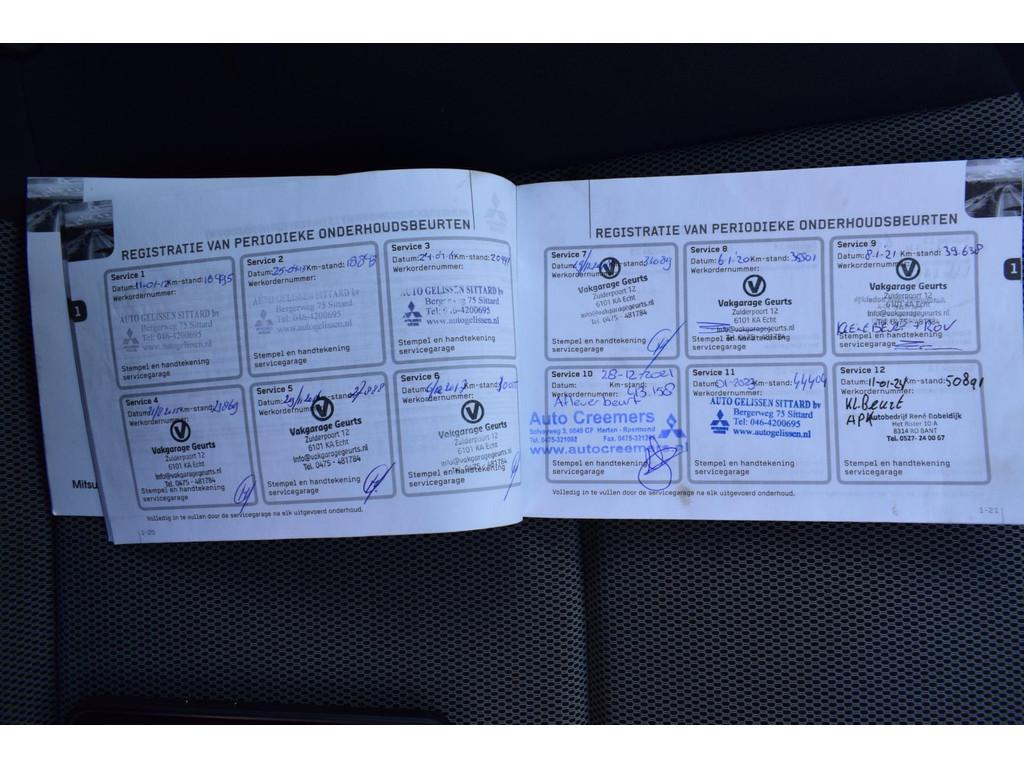 REGISTRATIE VAN PERIODIEKE ONDERHOUDSBEURTEN
Service 1
Datum: 11-01-12 Km-stand:
Werkordernummer:
AUTO GELISSEN SITTARD bv
Bergerweg 75 Sittard
Tel: 046-4200695
www.autogelissen.nl
Stempel en handtekening
servicegarage
Service 2
Datum: Km-stand:
Werkordernummer:
AUTO GELISSEN SITTARD bv
Bergerweg 75 Sittard
Tel: 046-4200695
www.autogelissen.nl
Stempel en handtekening
servicegarage
Service 3
Datum: Km-stand:
Werkordernummer:
AUTO GELISSEN SITTARD bv
Bergerweg 75 Sittard
Tel: 046-4200695
www.autogelissen.nl
Stempel en handtekening
servicegarage
Service 4
Datum: Km-stand:
Werkordernummer:
Vakgarage Geurts
Zuiderpoort 12
6101 KA Echt
info@vakgaragegeurts.nl
Tel. 0475 - 481784
Stempel en handtekening
servicegarage
Service 5
Datum: Km-stand:
Werkordernummer:
Vakgarage Geurts
Zuiderpoort 12
6101 KA Echt
info@vakgaragegeurts.nl
Tel. 0475 - 481784
Stempel en handtekening
servicegarage
Service 6
Datum: Km-stand:
Werkordernummer:
Vakgarage Geurts
Zuiderpoort 12
6101 KA Echt
info@vakgaragegeurts.nl
Tel. 0475 - 481784
Stempel en handtekening
servicegarage
Volledig in te vullen door de servicegarage na elk uitgevoerd onderhoud.
1-20
1
Mitsu
REGISTRATIE VAN PERIODIEKE ONDERHOUDSBEURTEN
Service 7
Datum: Km-stand:
Werkordernummer:
Vakgarage Geurts
Zuiderpoort 12
6101 KA Echt
info@vakgaragegeurts.nl
Tel. 0475 - 481784
Stempel en handtekening
servicegarage
Service 8
Datum: 6-1-20 Km-stand: 35501
Werkordernummer:
Vakgarage Geurts
Zuiderpoort 12
6101 KA Echt
info@vakgaragegeurts.nl
Stempel en handtekening
servicegarage
Service 9
Datum: 8-1-21 Km-stand: 39.638
Werkordernummer:
Vakgarage Geurts
Zuiderpoort 12
6101 KA Echt
info@vakgaragegeurts.nl
Stempel en handtekening
servicegarage
Service 10
28-12-2021
Datum: Km-stand:
Afleverbeurt 43.158
Werkordernummer:
Auto Creemers
Fax. 0475-
www.autocreemers.nl
Stempel en handtekening
servicegarage
Service 11
Datum: 01-2023 Km-stand: 44404
Werkordernummer:
AUTO GELISSEN SITTARD bv
Bergerweg 75 Sittard
Tel: 046-4200695
www.autogelissen.nl
Stempel en handtekening
servicegarage
Service 12
Datum: 11-01-24 Km-stand: 50891
Kl. Beurt
APK
Autobedrijf René Gobeldijk
Het Rister 10-A
8314 RD BANT
Tel. 0527- 24 00 67
Stempel en handtekening
servicegarage
Volledig in te vullen door de servicegarage na elk uitgevoerd onderhoud.
1-21
1